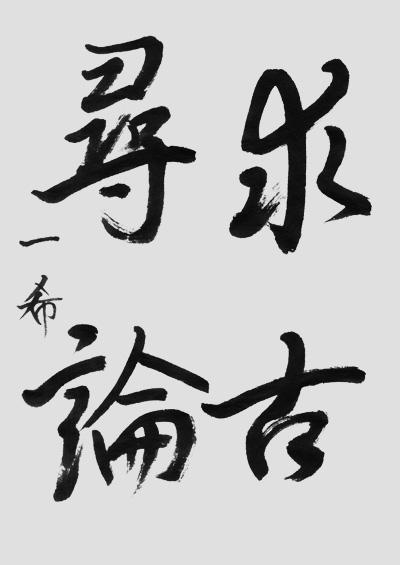 求古
尋論
一希